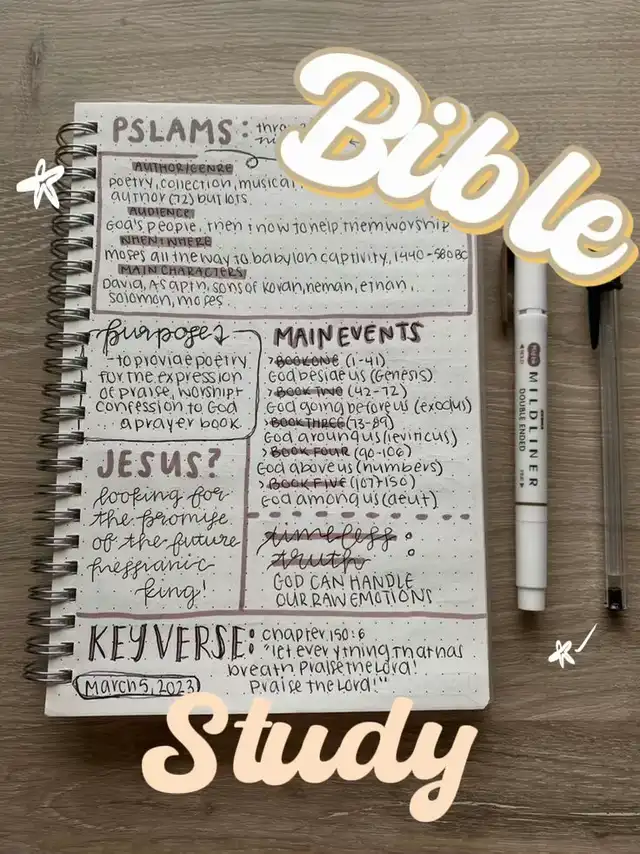 Bible
PSLAMS:
AUTHOR/GENRE
poetry, collection, musical.
author (72) but lots.
AUDIENCE
God's people, then & now to help them worship
WHEN & WHERE
moses all the way to babylon captivity, 1440-586 BC
MAIN CHARACTERS
David, Asaph, sons of Korah, heman, ethan,
solomon, moses
purpose
-to provide poetry
for the expression
of praise, worship &
confession to God
... a prayer book
JESUS?
looking for
the promise
of the future
messianic
king!
MAIN EVENTS
>BOOK ONE (1-41)
God beside us (Genesis)
>BOOK TWO (42-72)
God going before us (exodus)
>BOOK THREE (73-89)
God around us (leviticus)
>BOOK FOUR (90-106)
God above us (numbers)
>BOOK FIVE (107-150)
God among us (deut)
timeless
truth:
GOD CAN HANDLE
OUR RAW EMOTIONS
KEY VERSE: chapter 150:6
"let everything that has
breath Praise the Lord!
Praise the Lord!"
March 5, 2023
MILDLINER
DOUBLE ENDED
Study